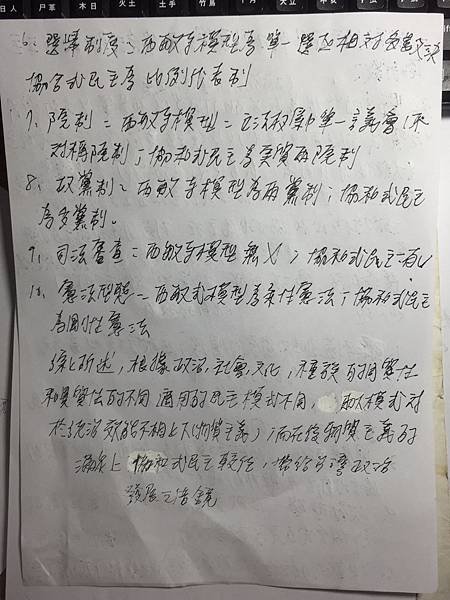 6、選舉制度:西敏寺模型為單一選區相對多數決
協合式民主為比例代表制
7、院制:西敏寺模型=立法權歸單一議會(不
對稱院制);協和式民主為實質兩院制
8、政黨制:西敏寺模型為兩黨制;協和式民主
為多黨制。
9、司法審查:西敏寺模型無X;協和式民主有V
10、憲法型態:西敏式模型為柔性憲法;協和式民主
為剛性憲法
綜上所述,根據政治,社會,文化,種族的同質性
和異質性的不同 適用的民主模式不同 兩模式對
於統治效能不相上下(物質主義);而在後物質主義的
滿足上 協和式民主較佳,帶給台灣政治
發展之借鏡
日人 尸軍 木日 火土 土手 竹鳥